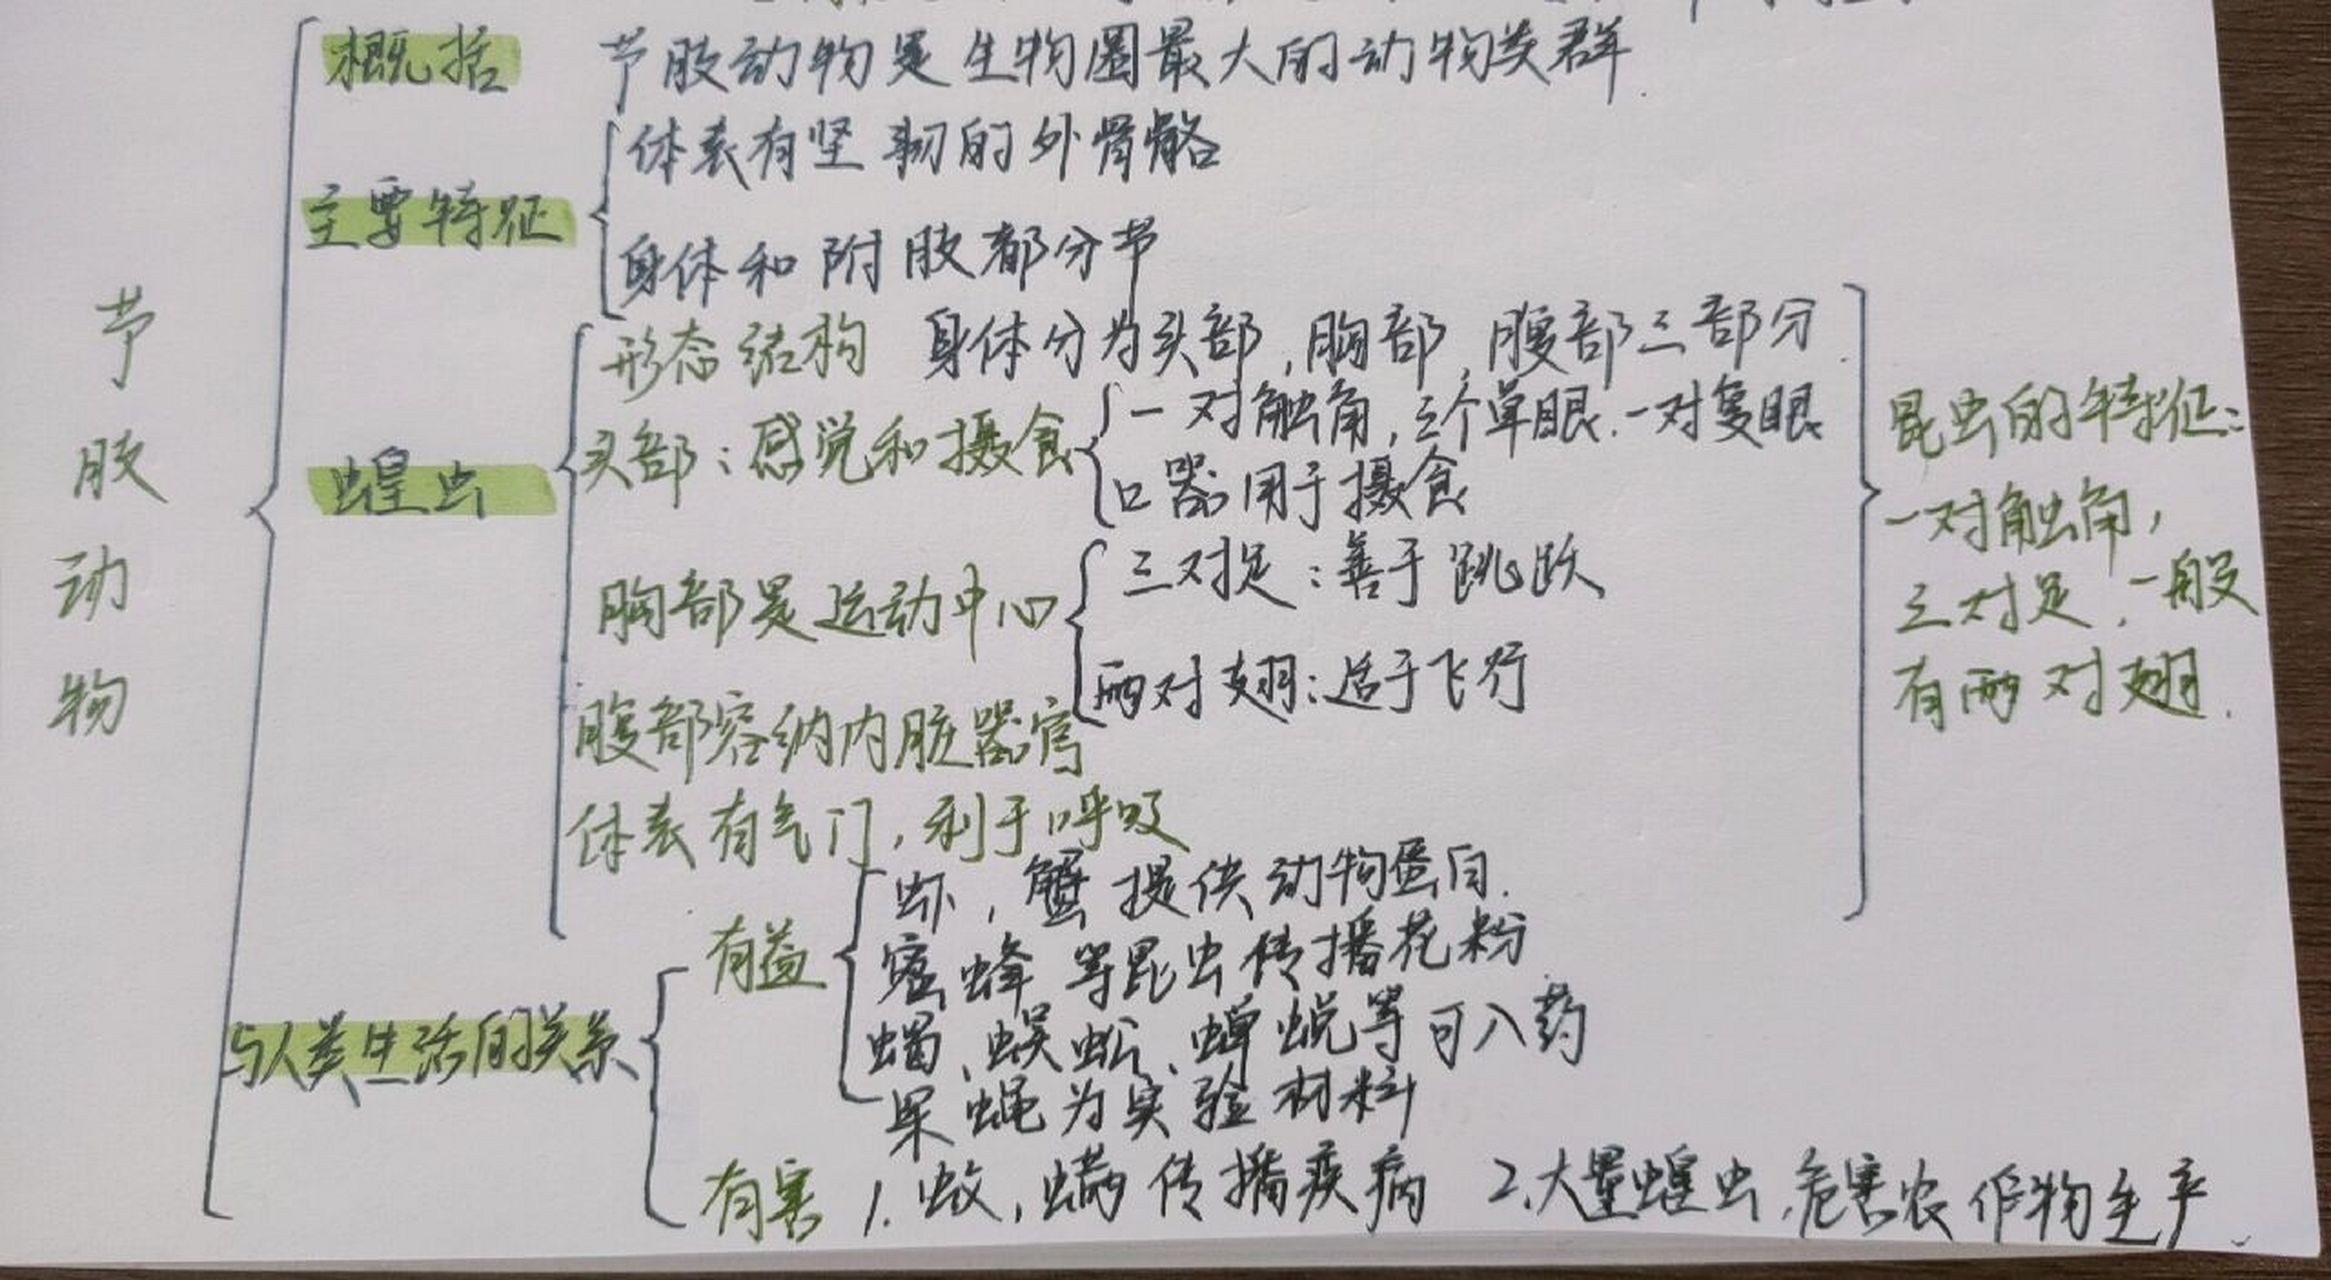 概括 节肢动物是生物圈最大的动物类群.
体表有坚韧的外骨骼
主要特征
身体和附肢都分节
节肢动物
形态结构 身体分为头部,胸部,腹部三部分.
一对触角,三个单眼.一对复眼
头部:感觉和摄食
口器用于摄食
蝗虫
三对足:善于跳跃
胸部是运动中心
两对翅:适于飞行
腹部容纳内脏器官
体表有气门,利于呼吸
昆虫的特征:
一对触角,
三对足,一般
有两对翅.
虾,蟹提供动物蛋白.
有益
蜜蜂等昆虫传播花粉
蝎、蜈蚣、蝉蜕等可入药
与人类生活的关系
果蝇为实验材料
有害 1.蚊,螨传播疾病 2.大量蝗虫,危害农作物生产.